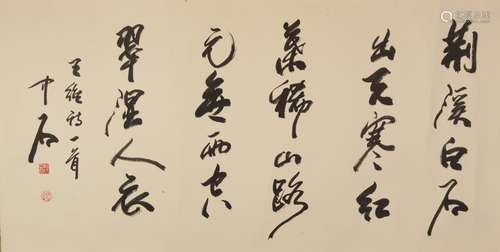 荆溪白石
出天寒红
叶稀山路
元无雨空
翠湿人衣
王维诗一首
中石